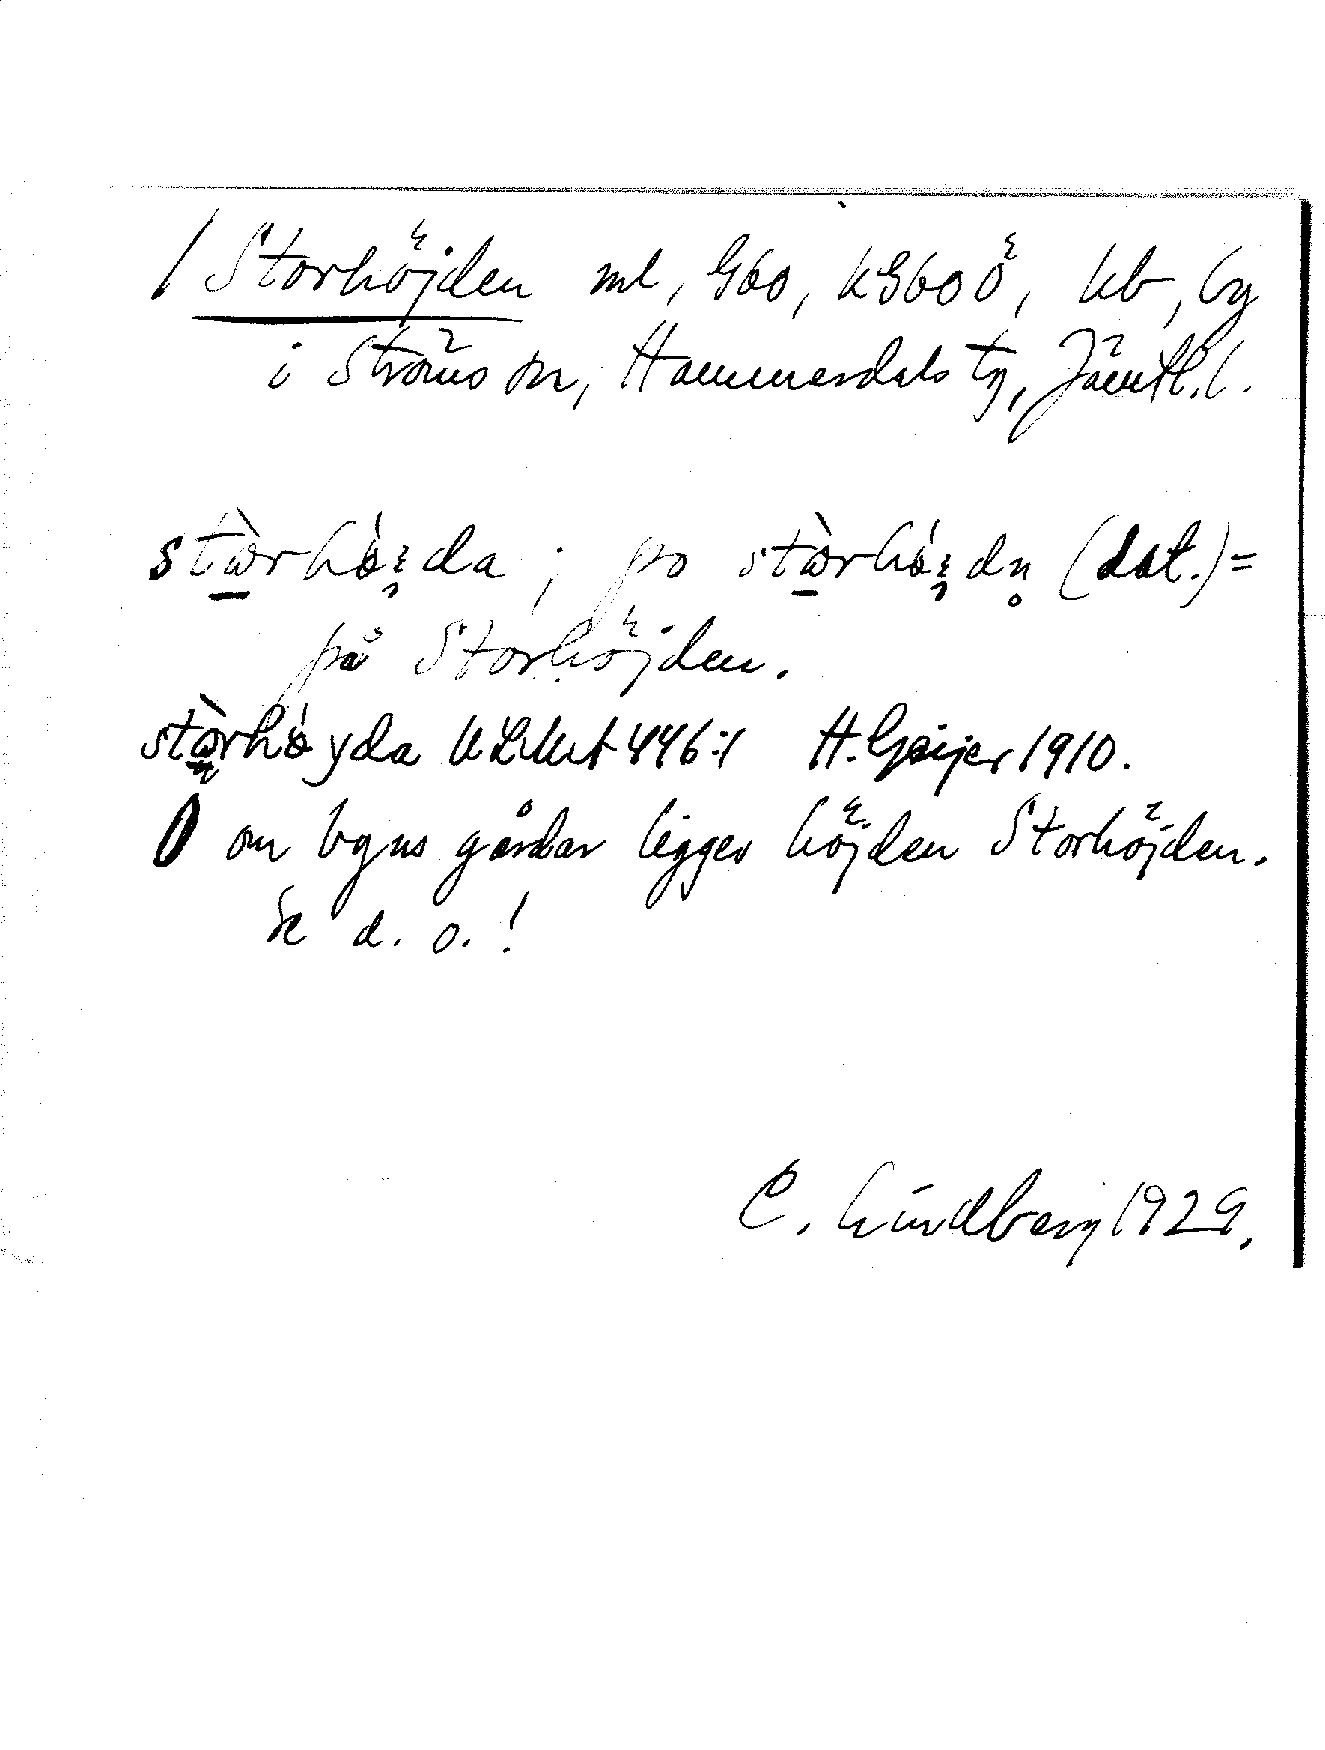 / Storhöjden ml, G60, kG60Ö, kb, by
i Ströms sn, Hammerdals tg, Jämtl. l.
stὼrhǿda ; po stὼrhǿdn̥ (dat.) =
på Storhöjden.
stὼrhǿyda ULMA 446:1 H. Geijer 1910.
O om byns gårdar ligger höjden Storhöjden.
Se d. o. !
C. Lindberg 1929.